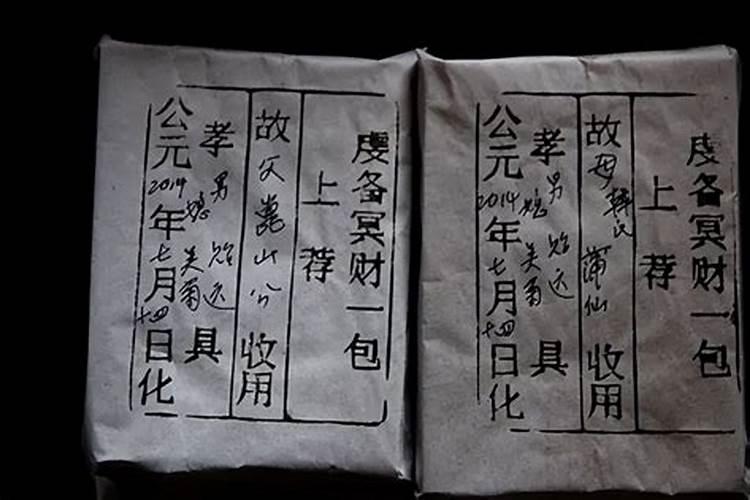 虔备冥财一包
上荐
故父
山公
收用
孝男
媳
具
公元2014年七月十四日化
虔备冥财一包
上荐
故母韩氏
仙
收用
孝男
媳
具
公元2014年七月十四日化